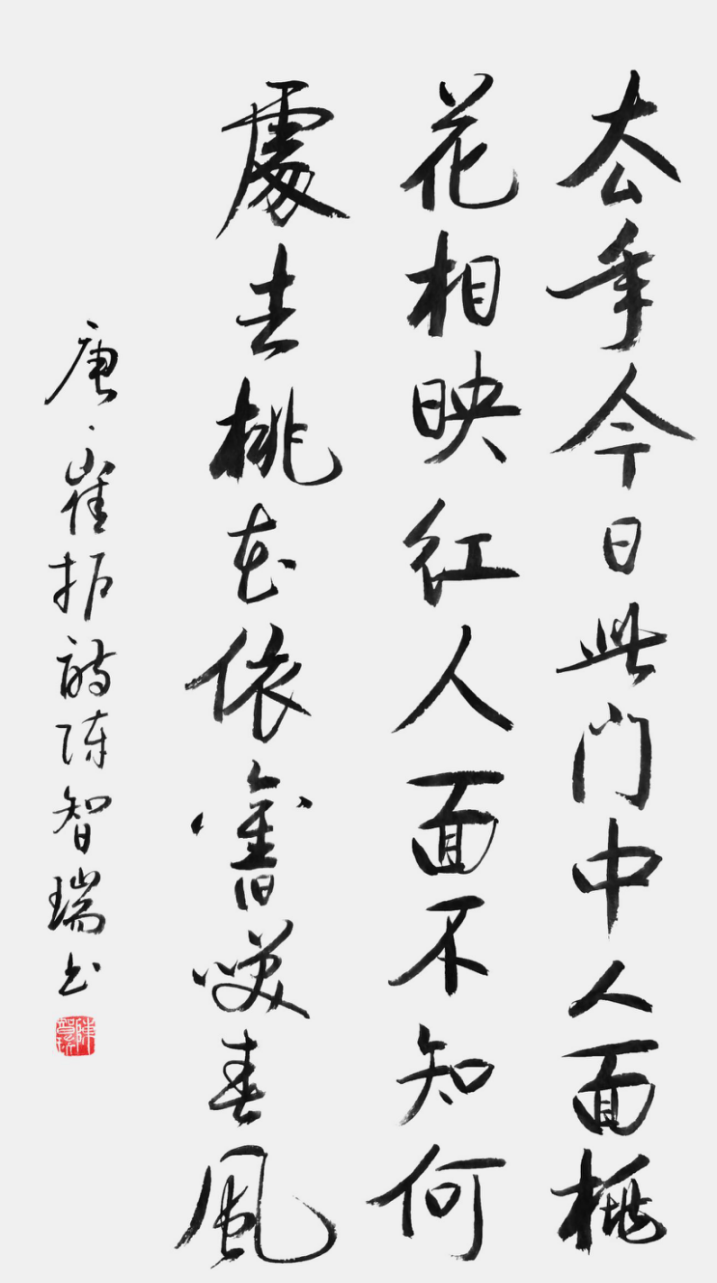 去年今日此门中人面桃
花相映红人面不知何
處去桃花依舊咲春風
唐·崔护詩陈智瑞书